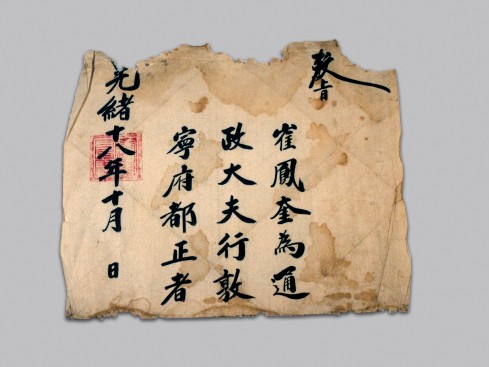 敎旨
崔鳳奎為通
政大夫行敦
寧府都正者
光緒十八年十月 日